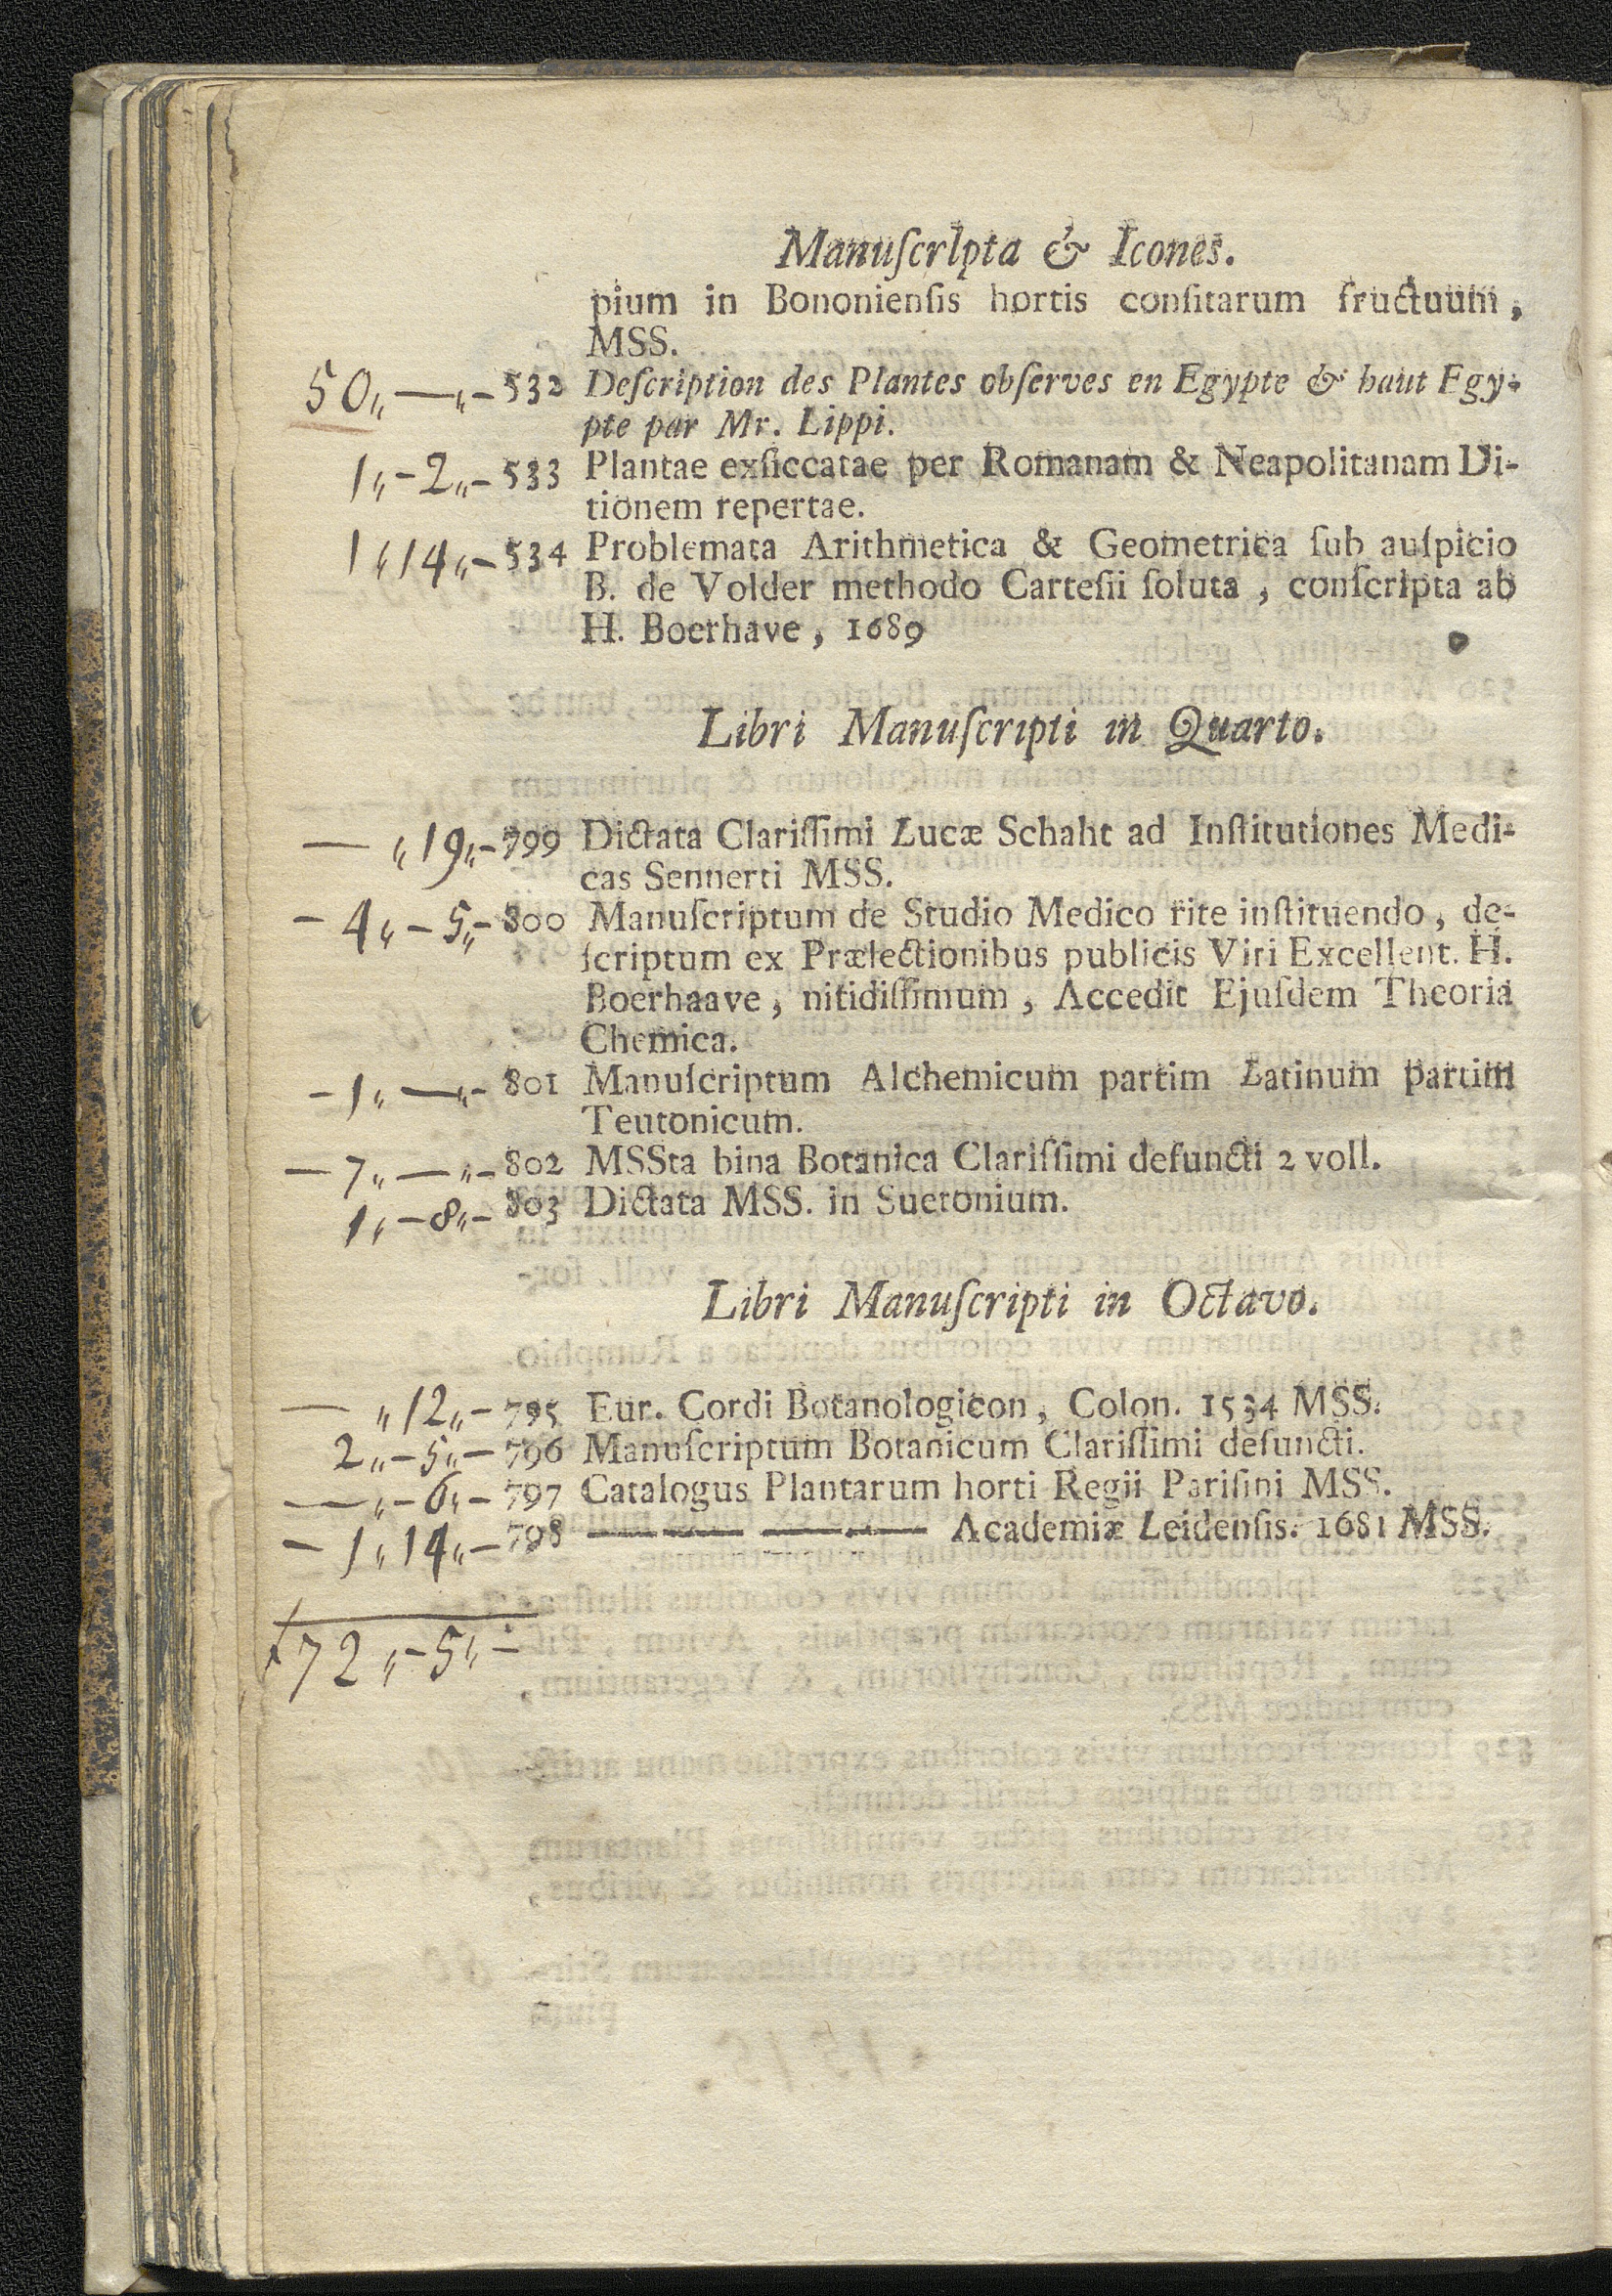 Manuſcrlpta & Icones.
pium in Bononienſis hortis conſitarum fructuum,
MSS.
50„—„- 532 Deſcription des Plantes obſerves en Egypte & haut Egy-
pte par Mr. Lippi.
1„-2„- 533 Plantae exſiccatae per Romanam & Neapolitanam Di-
tionem repertae.
1„14„- 534 Problemata Arithmetica & Geometrica ſub auſpicio
B. de Volder methodo Carteſii ſoluta, conſcripta ab
H. Boerhave, 1689
Libri Manuſcripti in Quarto.
— „19„- 799 Dictata Clariſſimi Lucæ Schaht ad Inſtitutiones Medi-
cas Sennerti MSS.
- 4„-5„- 800 Manuſcriptum de Studio Medico rite inſtituendo, de-
ſcriptum ex Prælectionibus publicis Viri Excellent. H.
Boerhaave, nitidiſſimum, Accedit Ejuſdem Theoria
Chemica.
- 1„—„- 801 Manuſcriptum Alchemicum partim Latinum partim
Teutonicum.
- 7„—„- 802 MSSta bina Botanica Clariſſimi defuncti 2 voll.
1„-8„- 803 Dictata MSS. in Suetonium.
Libri Manuſcripti in Octavo.
— „12„- 795 Eur. Cordi Botanologicon, Colon. 1534 MSS.
2„-5„- 796 Manuſcriptum Botanicum Clariſſimi defuncti.
—„-6„- 797 Catalogus Plantarum horti Regii Pariſini MSS.
- 1„14„- 798 —— —— Academiæ Leidenſis. 1681 MSS.
72„-5„-